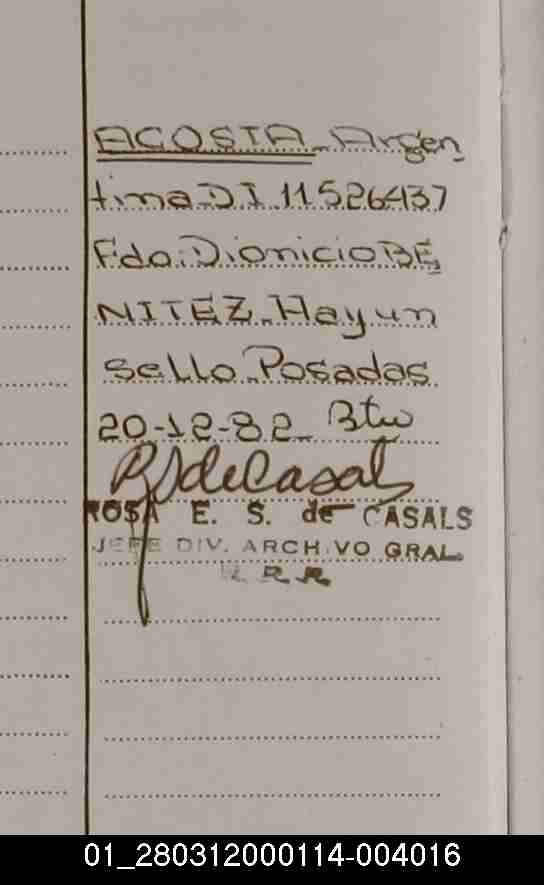 ACOSTA_Argen
tina D I 11526437
Fdo: Dionicio BE
NITEZ_Hay un
sello Posadas
20-12-82_
RSdeCasals
ROSA E. S. de CASALS
JEFE DIV. ARCHIVO GRAL
01_280312000114-004016